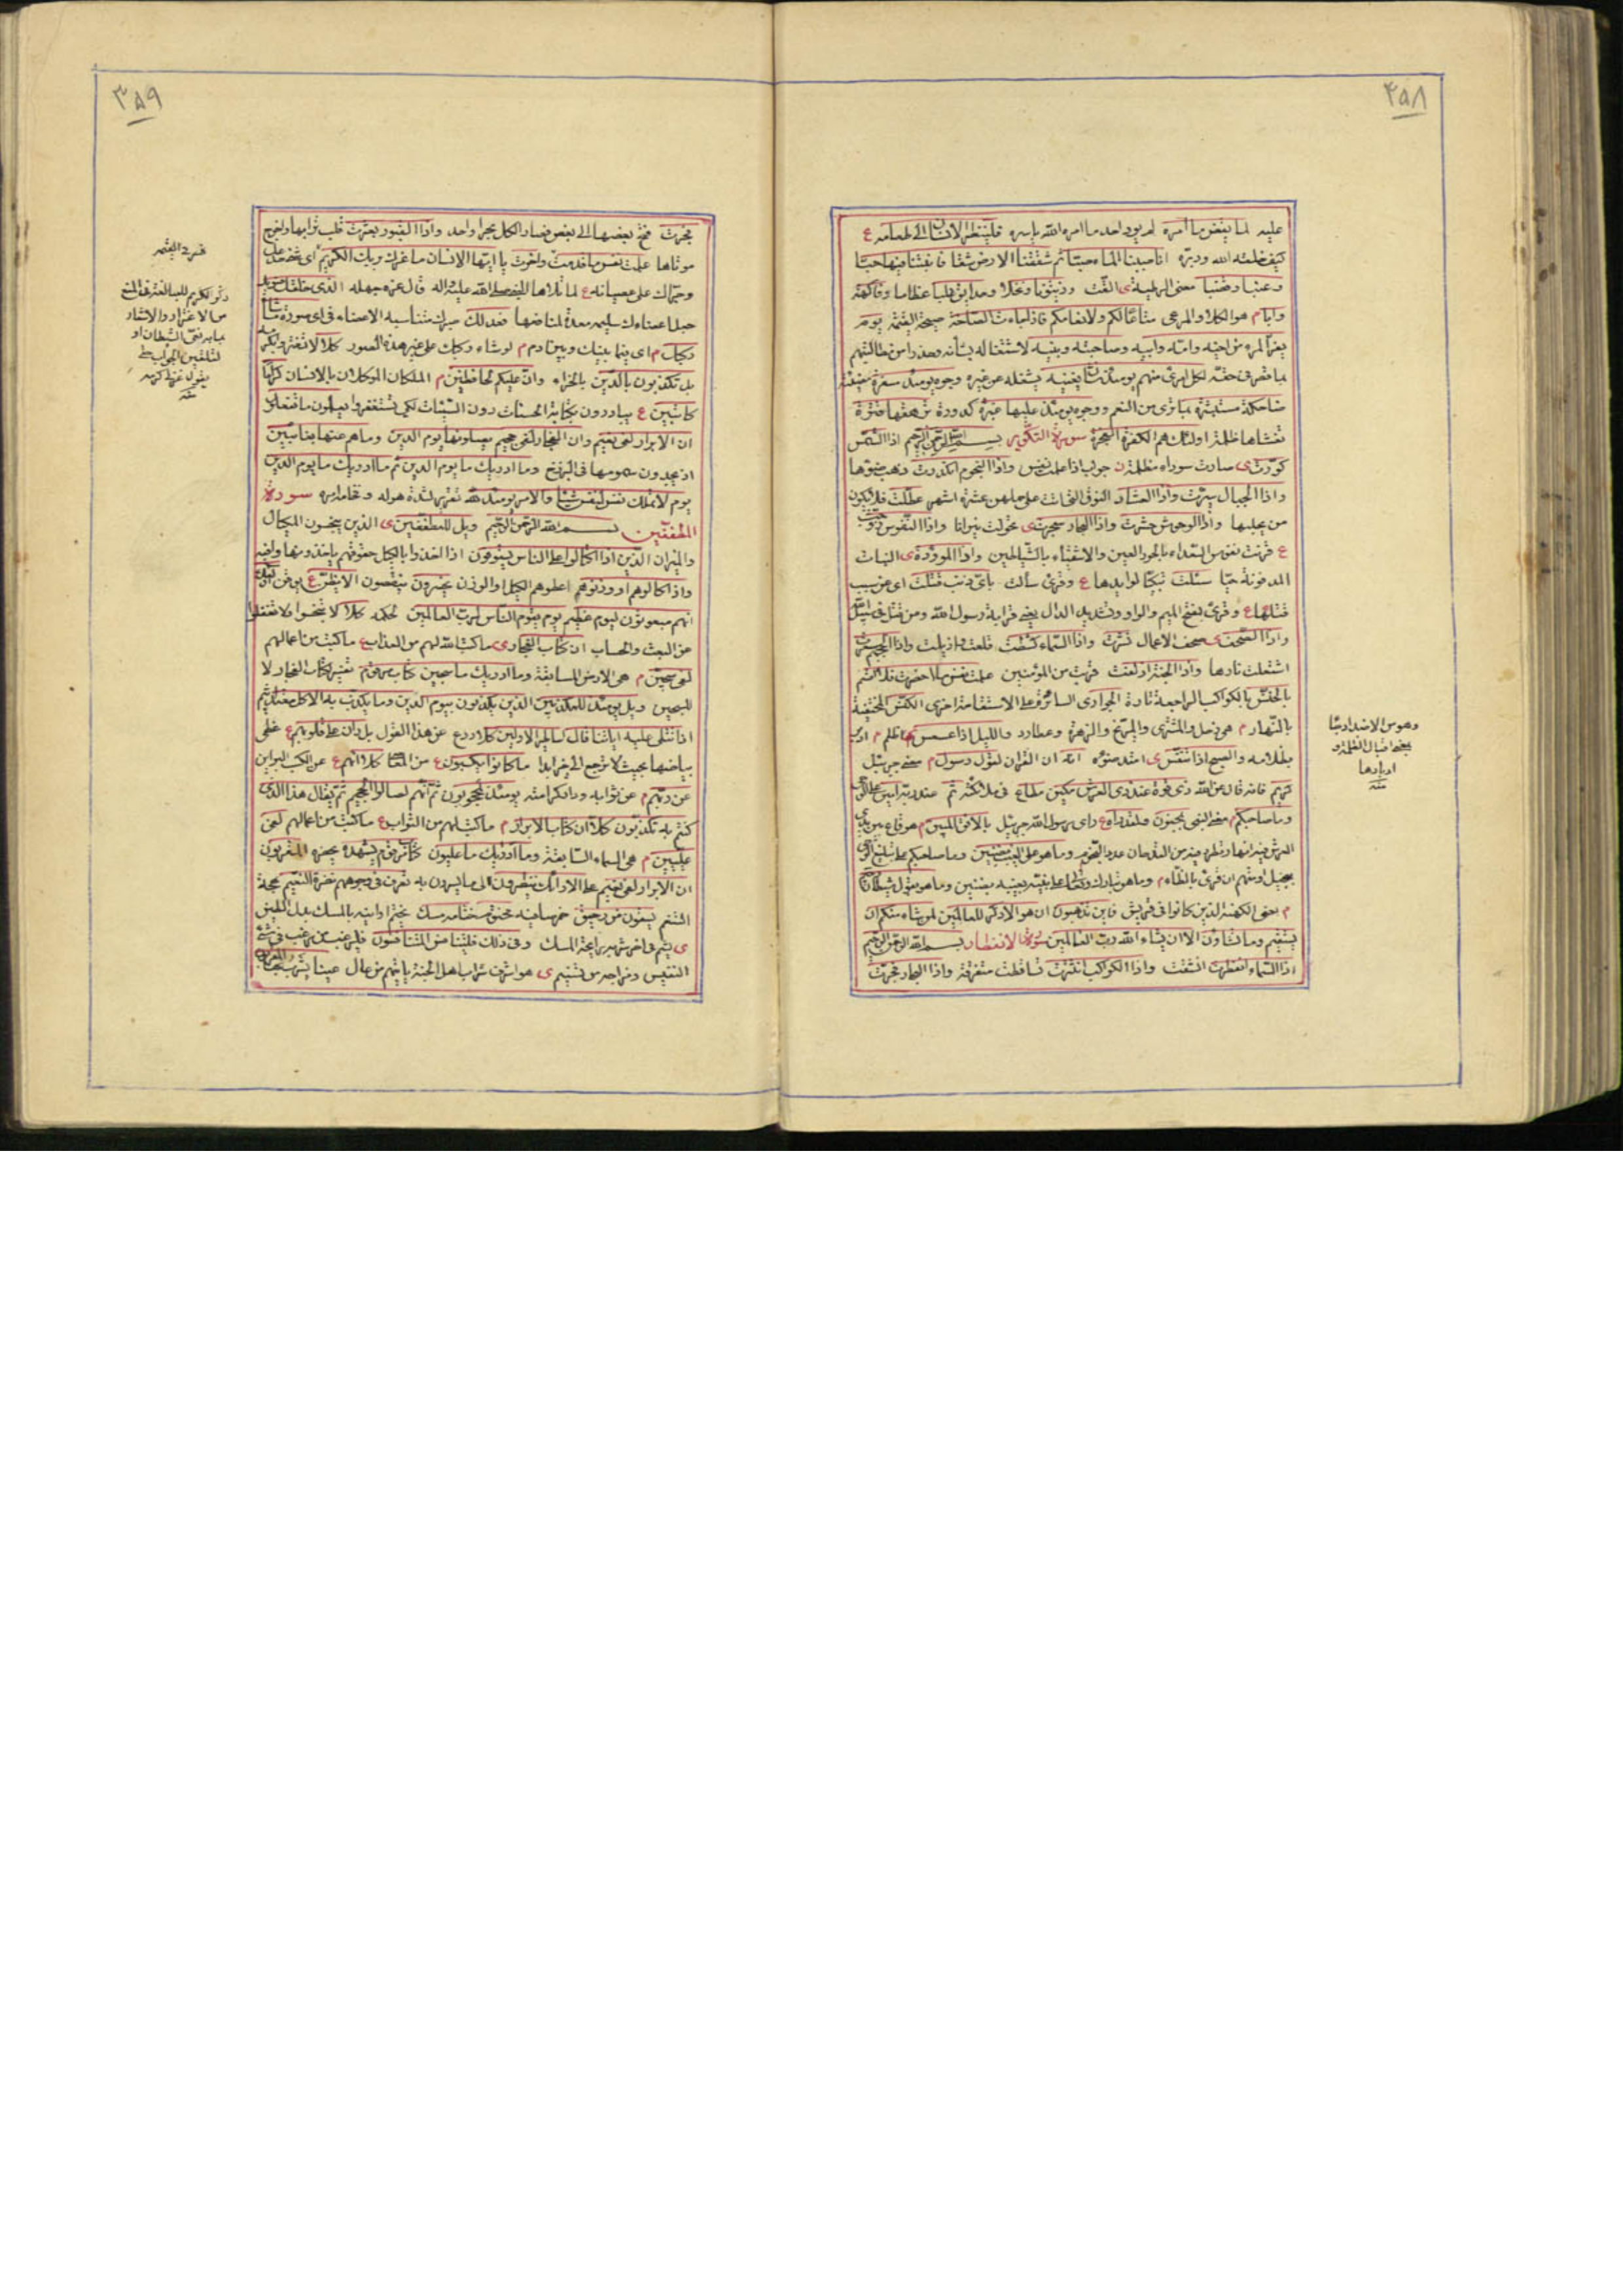 ۴۵۸
علیه لما یقض ما أمره لم یود احد ما امره الله باسره فلینظر الانسان الی طعامه ع
کیف خلقه الله ودبره انا صببنا الماء صبّا ثم شققنا الارض شقا فانبتنا فیها حبّا
وعنبا وقضبا معنی الرطبة ی القت وزیتونا ونخلا وحدائق غلبا عظاما وفاکهة
وابّا م هو الکلاء والمرعی متاعا لکم ولانعامکم فاذا جاءت الصاخة صیحة القیمة یوم
یفر المرء من اخیه وامّه وابیه وصاحبته وبنیه لاشتغاله بشأنه وحذرا من مطالبتهم
بما قصر فی حقهم لکل امرئ منهم یومئذ شان یغنیه یشغله عن غیره وجوه یومئذ مسفرة مضیئة
ضاحکة مستبشرة بما تری من النعم ووجوه یومئذ علیها غبرة کدورة ترهقها قترة
تغشاها ظلمة اولئک هم الکفرة الفجرة سورة التکویر بسم الله الرحمن الرحیم اذا الشمس
کورت ی صارت سوداء مظلمة جواب اذا علمت نفس واذا النجوم انکدرت ذهب ضوءها
واذا الجبال سیّرت واذا العشار النوق التی اتت علی حملهن عشرة اشهر عطّلت فلا یکون
من یحلبها واذا الوحوش حشرت واذا البحار سجرت ی تحولت نیرانا واذا النفوس زوجت
ع قرنت نفوس السعداء بالحور العین والاشقیاء بالشیاطین واذا الموؤدة ی البنات
المدفونة حیّا سئلت تبکیتا لوایدها ع وقرئ سألت بای ذنب قتلت ای عن سبب
قتلها ع وقرئ بفتح المیم والواو وتشدید الدال یعنی قرابة رسول الله ومن قتل فی سبیل
واذا الصحف ی صحف الاعمال نشرت واذا السماء کشطت قلعت وازیلت واذا الجحیم سعرت
اشتعلت نارها واذا الجنة ازلفت قربت من المؤمنین علمت نفس ما احضرت فلا اقسم
بالخنس بالکواکب الراجعة تارة الجواری السائرة علی الاستقامة اخری الکنس المختفیة
بالنهار م هی زحل والمشتری والمریخ والزهرة وعطارد واللیل اذا عسعس اظلم م ادبر
بظلامه والصبح اذا تنفس ی امتد ضوءه انه ان القران لقول رسول م یعنی جبرئیل
کریم فانه قال عن الله ذی قوة عند ذی العرش مکین مطاع فی ملائکته ثم عند ربه امین علی الوحی
وما صاحبکم یعنی النبی بمجنون ولقد راه ع رای رسول الله جبرئیل بالافق المبین
وما هو علی الغیب بضنین وما صاحبکم علی تبلیغ الوحی
ببخیل ومتهم ان قرئ بالظاء م وما هو بقول شیطان
م یعنی الکهنة الذین کانوا فی قریش فاین تذهبون ان هو الا ذکر للعالمین لمن شاء منکم ان
یستقیم وما تشاؤن الا ان یشاء الله رب العالمین سورة الانفطار بسم الله الرحمن الرحیم
اذا السماء انفطرت انشقت واذا الکواکب انتثرت تساقطت متفرقة واذا البحار فجّرت
وهو من الاضداد
یعنی اقبال الظلمة و
ادبارها
منه
۳۵۹
فجرت فتح بعضها الی بعض فصار الکل بحرا واحدا واذا القبور بعثرت قلب ترابها واخرج
موتاها علمت نفس ما قدمت واخرت یا ایها الانسان ما غرک بربک الکریم ای شیء خدعک
وجرّاک علی عصیانه ع لما تلاها النبی صلی الله علیه واله قال غره جهله الذی خلقک فسویک
جعل اعضاءک سلیمة معدة لمنافعها فعدلک صیرک متناسبة الاعضاء فی ای صورة ما شاء
رکبک م ای فیما بینک وبین ادم م لو شاء رکبک علی غیر هذه الصور کلا لا تغتر
بل تکذبون بالدین بالجزاء وان علیکم لحافظین م الملکان الموکلان بالانسان کراما
کاتبین ع یبادرون بکتابة الحسنات دون السیئات لکی تستغفروا یعلمون ما تفعلون
ان الابرار لفی نعیم وان الفجار لفی جحیم یصلونها یوم الدین وما هم عنها بغائبین
اذ یجدون سمومها فی البرزخ وما ادریک ما یوم الدین ثم ما ادریک ما یوم الدین
یوم لا تملک نفس لنفس شیئا والامر یومئذ لله تقریر لشدة هوله وفخامة امره سورة
المطففین بسم الله الرحمن الرحیم ویل للمطففین ی الذین یبخسون المکیال
والمیزان الذین اذا اکتالوا علی الناس یستوفون اذا اخذوا بالکیل حقوقهم یاخذونها وافیة
واذا کالوهم او وزنوهم اعطوهم الکیل او الوزن یخسرون ینقصون الا یظن ع یوقن اولئک
انهم مبعوثون لیوم عظیم یوم یقوم الناس لرب العالمین لحکمه کلا لا تبخسوا ولا تغفلوا
عن البعث والحساب ان کتاب الفجار ی ما کتب الله لهم من العذاب ع ما کتبت من اعمالهم
لفی سجین م هی الارض السابعة وما ادریک ما سجین کتاب مرقوم تفسیر لکتاب الفجار لا
للسجین ویل یومئذ للمکذبین الذین یکذبون بیوم الدین وما یکذب به الا کل معتد اثیم
اذا تتلی علیه ایاتنا قال اساطیر الاولین کلا ردع عن هذا القول بل ران علی قلوبهم ع غطی
بیاضها بحیث لا ترجع الی خیر ابدا ما کانوا یکسبون من المعاصی کلا انهم
عن ربهم م عن ثوابه ودار کرامته یومئذ لمحجوبون ثم انهم لصالوا الجحیم ثم یقال هذا الذی
کنتم به تکذبون کلا ان کتاب الابرار م ما کتب لهم من الثواب ع ما کتبت من اعمالهم لفی
علیین م هی السماء السابعة وما ادریک ما علیون کتاب مرقوم یشهده یحضره المقربون
ان الابرار لفی نعیم علی الارائک ینظرون الی ما یسرون به تعرف فی وجوههم نضرة النعیم بهجة
التنعم یسقون من رحیق خمر صافیة مختوم ختامه مسک تختم اوانیه بالمسک بدل الطین
ی یشم فی اخر شربه رایحة المسک وفی ذلک فلیتنافس المتنافسون فلیرغب من یرغب فی شیء
النفیس ومزاجه من تسنیم ی هو اشرف شراب اهل الجنة یاتیهم من عال عینا یشرب بها المقربون
ذکر الکریم للمبالغة فی المنع
من الاغترار والاشعار
بما به یغره الشیطان او
لتلقین الجواب حتی
یقول غرنی کرمه
منه